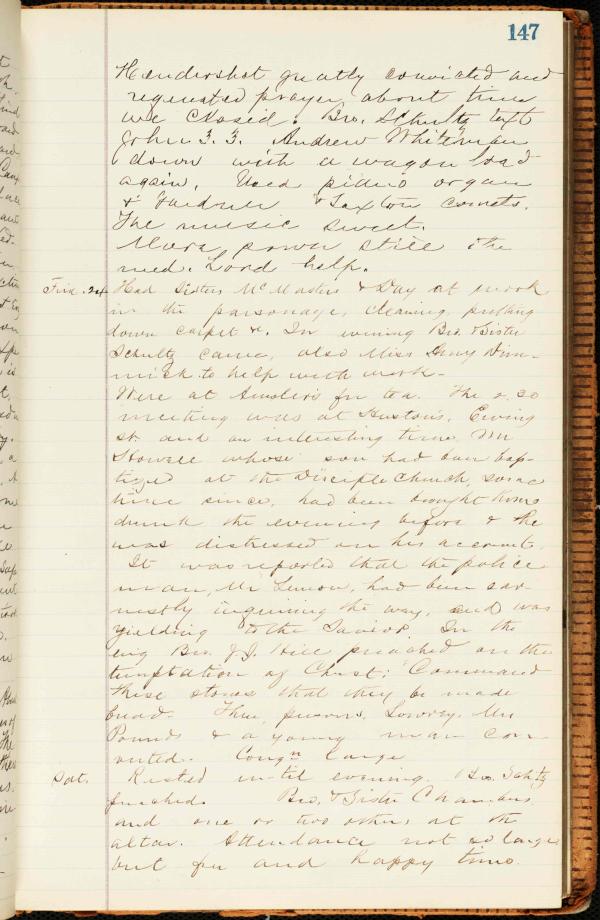 147
Hendershot greatly convicted and
requested prayer about time
we closed. Bro. Schultz text
John 3. 3. Andrew Whiteman
down with a wagon load
again. Used piano organ
& Gardner & Saxton cornets.
The music sweet.
More power still the
need. Lord help.
Frid. 24 Had Sisters McMasters & Day at work
in the parsonage, cleaning, putting
down carpet &c. In evening Bro. & Sister
Schultz came, also Miss Dim-
mick to help with work.
Were at for tea. The 2.30
meeting was at Huston's, Ewing
st. and an interesting time. Mr
Stowell whose son had been bap-
tized at the Disciple Church, some
time since, had been brought home
drunk the evening before & he
was distressed on his account.
It was reported that the police
man, Mr Lemon, had been ear-
nestly inquiring the way, and was
yielding to the Savior. In the
evg Bro. J. J. Hill preached on the
temptation of Christ: "Command
these stones that they be made
bread. Three persons, Lowry, Mr
Pounds & a young man con-
verted. Congn large.
Sat. Rested until evening. Bro. Schltz
preached. Bro. & Sister Chambers
and one or two others at the
altar. Attendance not so large
but fer and happy time.